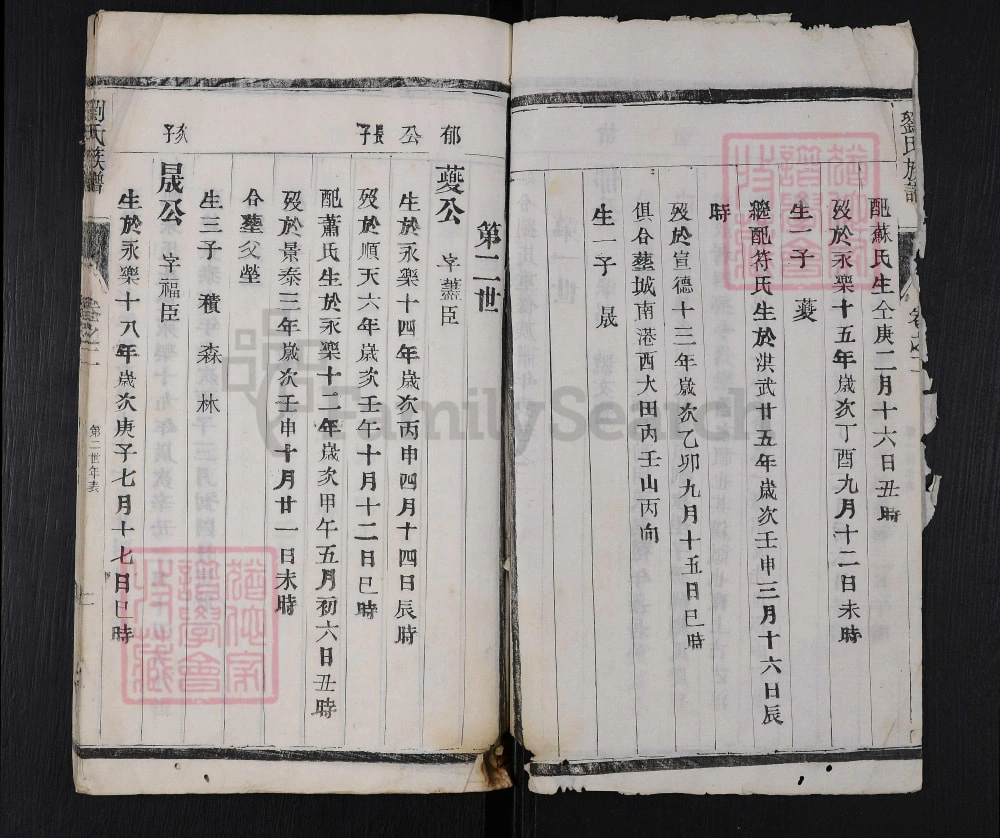 劉氏族譜
配蘇氏生仝庚二月十六日丑時
歿於永樂十五年歲次丁酉九月十二日未時
生一子 夔
繼配符氏生於洪武廿五年歲次壬申三月十六日辰
時
歿於宣德十三年歲次乙卯九月十五日巳時
俱合塟城南港西大田內壬山丙向
生一子 晟
第二世
郁公長子
夔公 字藎臣
生於永樂十四年歲次丙申四月十四日辰時
歿於順天六年歲次壬午十月十二日巳時
配蕭氏生於永樂十二年歲次甲午五月初六日丑時
歿於景泰三年歲次壬申十月廿一日未時
合塟父塋
生三子 積 森 林
次子
晟公 字福臣
生於永樂十八年歲次庚子七月十七日巳時
劉氏族譜
卷之二
第二世年表
二
FamilySearch